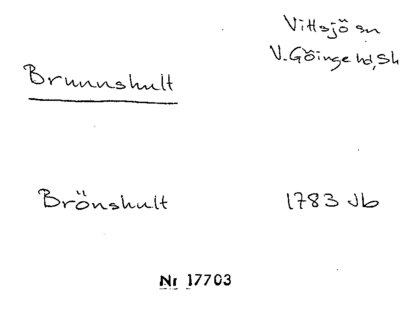 Vittsjö sn
V. Göinge hd, Sk
Brunnshult
Brönshult 1783 Jb
Nr 17703